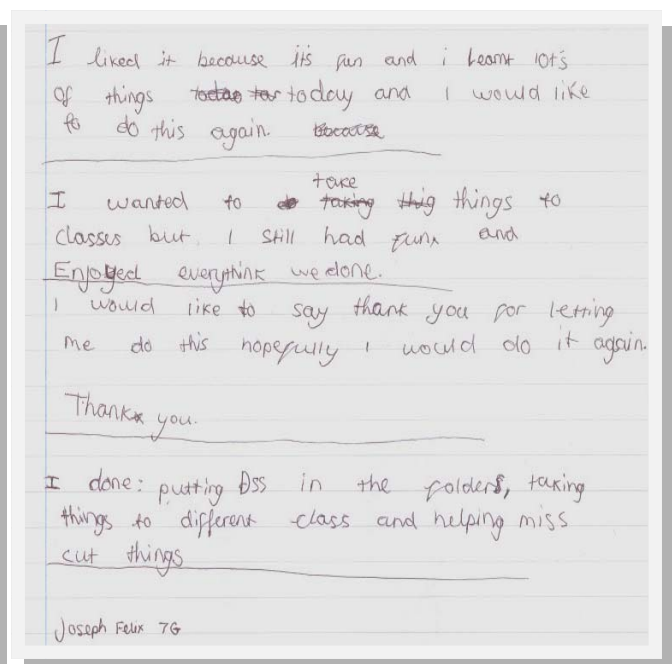 I liked it because it's fun and i learnt lot's
of things today and I would like
to do this again.
take
I wanted to things to
classes but I still had fun and
Enjoyed everythink we done.
I would like to say thank you for letting
me do this hopefully I would do it again.
Thank you.
I done: putting Dss in the folders, taking
things to different class and helping miss
cut things
Joseph Felix 7G